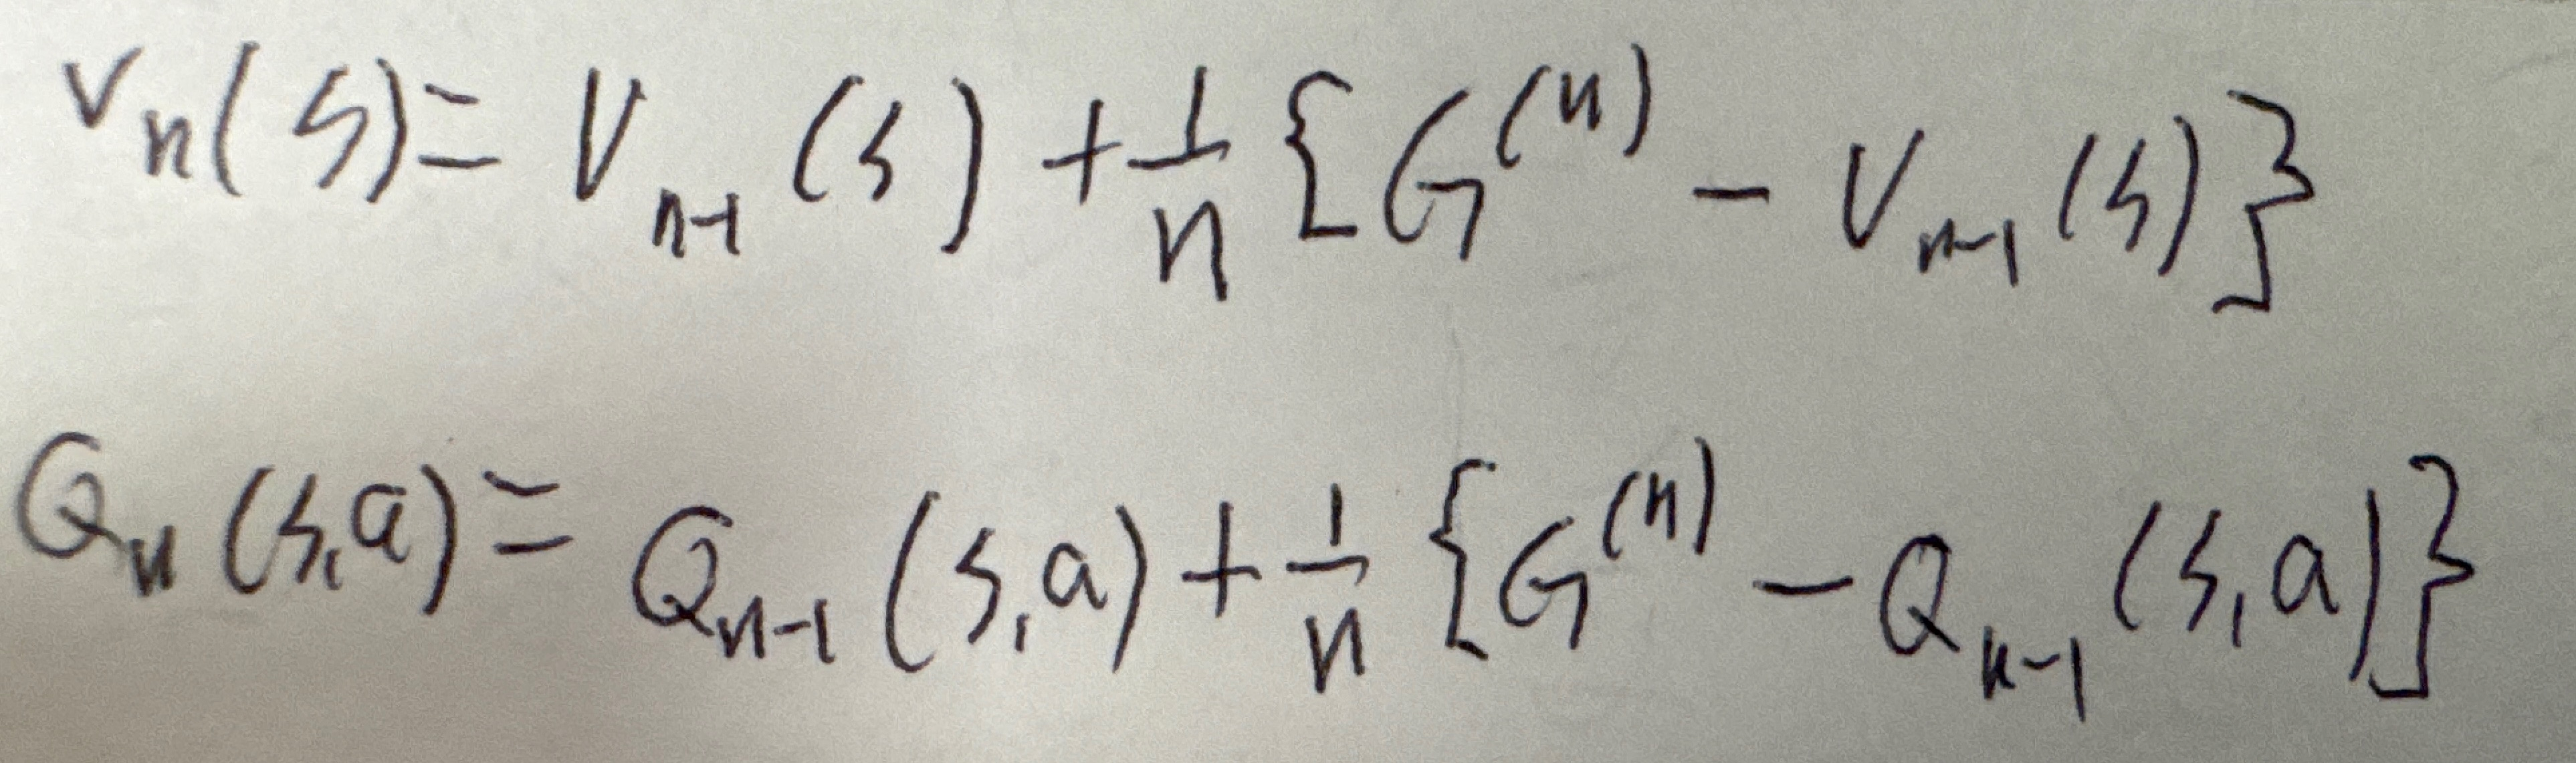 V_n(s) = V_{n-1}(s) + \frac{1}{n} \{ G^{(n)} - V_{n-1}(s) \}
Q_n(s,a) = Q_{n-1}(s,a) + \frac{1}{n} \{ G^{(n)} - Q_{n-1}(s,a) \}